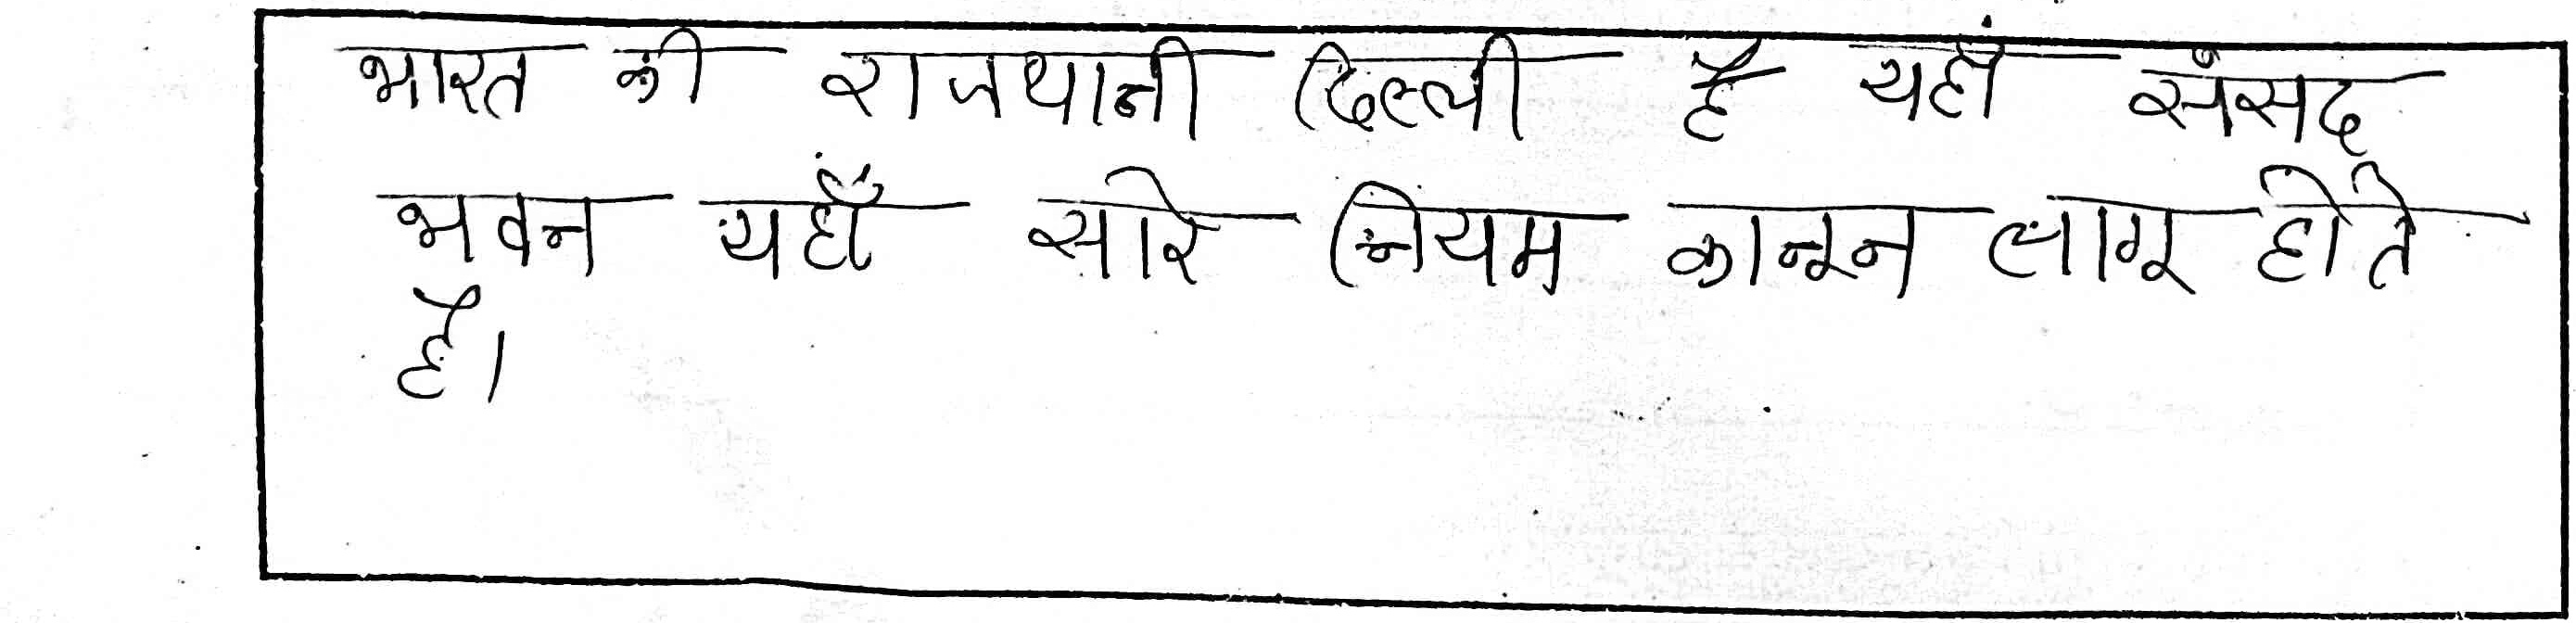 भारत की राजधानी दिल्ली है यहाँ संसद
भवन यहाँ सारे नियम कानून लागू होते
है।